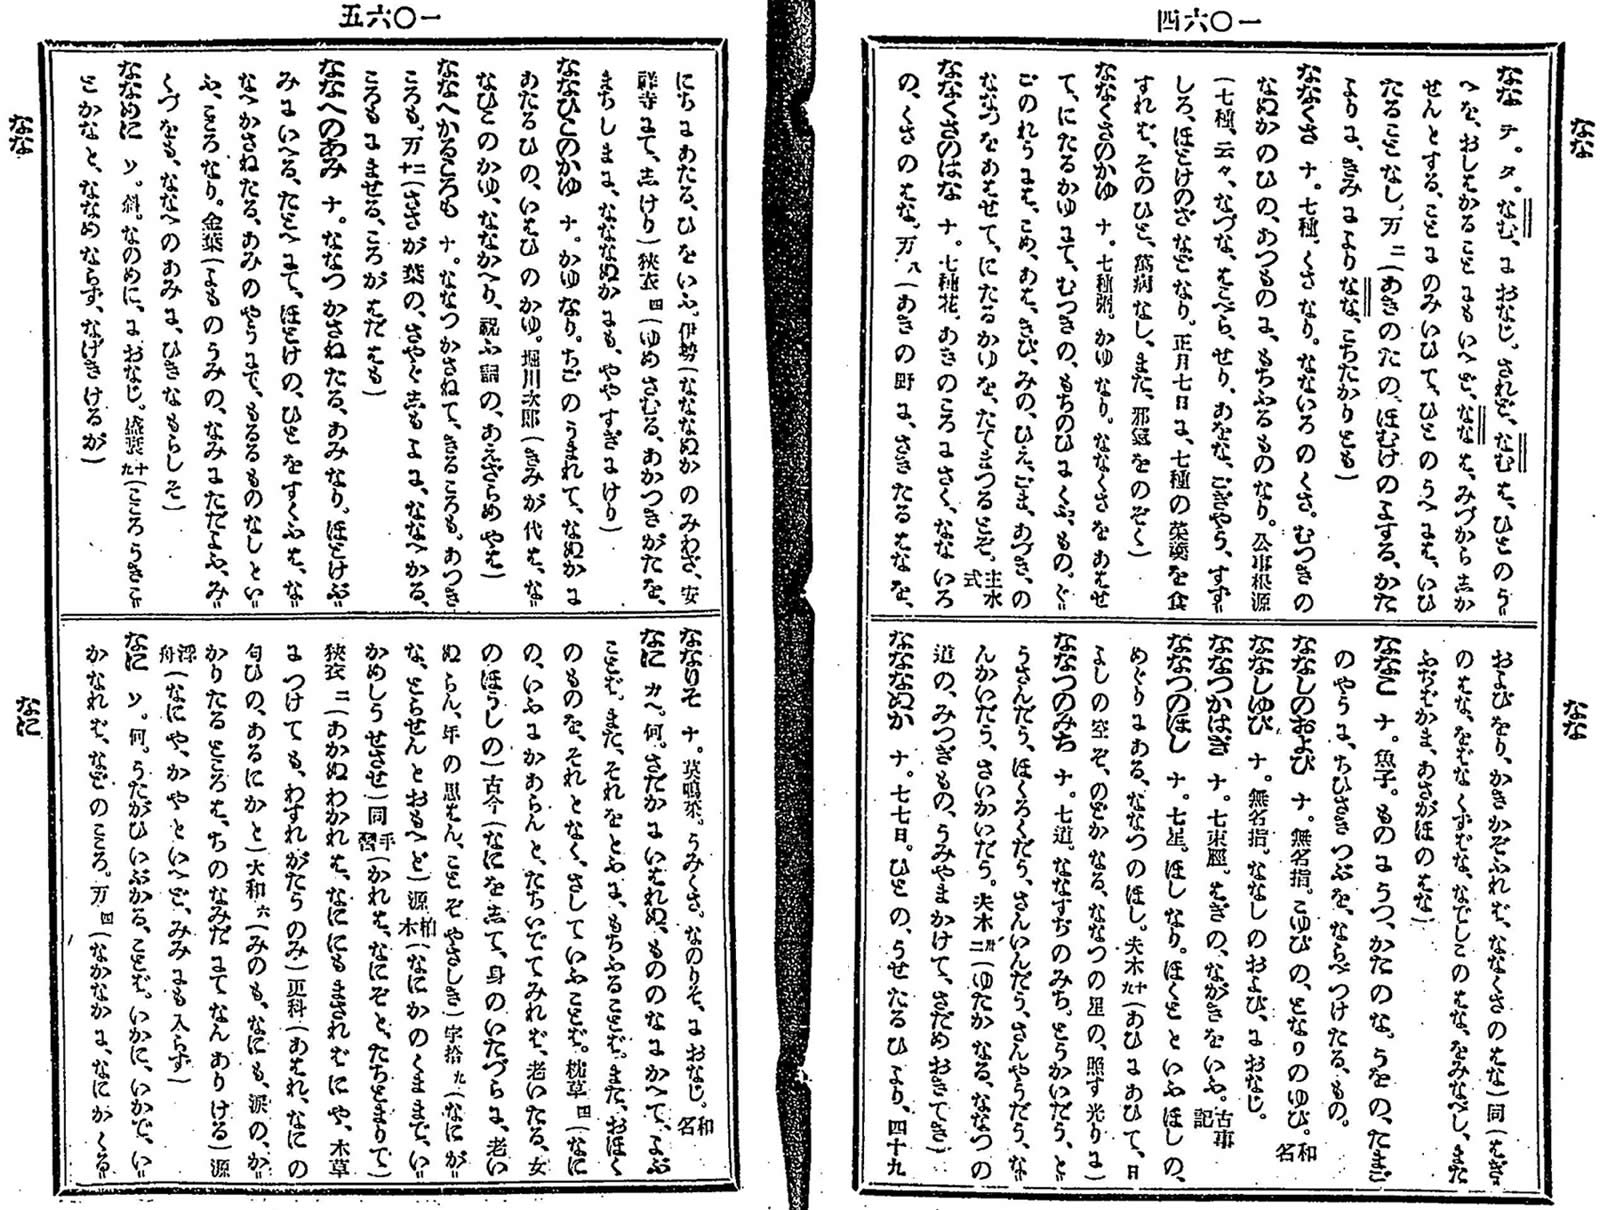 一〇六四
なな
なな テ。タ。なむ、におなじ。されど、なむは、ひとのう〃
へを、おしはかることにもいへど、ななは、みづからしか
せんとする、ことにのみいひて、ひとのうへには、いひ
たることなし。万二(あきのたの、ほむけのよする、かた
よりに、きみによりなな、こちたかりとも)
ななくさ ナ。七種、くさなり。なないろのくさ。むつきの
なぬかのひの、あつものに、もちふるものなり。公事根源
(七種、云々、なづな、はこべら、せり、あをな、ごぎやう、すず〃
しろ、ほとけのざなどなり。正月七日に、七種の菜羹を食
すれば、そのひと、萬病なし、また、邪氣をのぞく)
ななくさのかゆ ナ。七種粥。かゆなり。ななくさをあはせ
て、にたるかゆにて、むつきの、もちのひにくふ、もの。ぐ〃
ごのれうには、こめ、あは、きび、みの、ひえ、ごま、あづき、の
ななつをあはせて、にたるかゆを、たてまつるとぞ。主水式
ななくさのはな ナ。七種花。あきのころにさく、なないろ
の、くさのはな。万八(あきの野に、さきたるはなを、
なな
およびをり、かきかぞふれば、ななくさのはな)同(はぎ
のはな、をばなくずばな、なでしこのはな、をみなべし、また
ふぢばかま、あさがほのはな)
ななこ ナ。魚子。ものにうつ、かたのな。うをの、たまご
のやうに、ちひさきつぶを、ならべつけたる、もの。
ななしのおよび ナ。無名指。こゆびの、となりのゆび。和名
ななしゆび ナ。無名指。ななしのおよび、におなじ。
ななつかはぎ ナ。七束脛。はぎの、ながきをいふ。古事記
ななつのほし ナ。七星。ほしなり。ほくとといふほしの、
めぐりにある、ななつのほし。夫木十九(あひにあひて、日
よしの空ぞ、のどかなる、ななつの星の、照す光りに)
ななつのみち ナ。七道。ななすぢのみち。とうかいだう、と
うさんだう、ほくろくだう、さんいんだう、さんやうだう、な
んかいだう、さいかいだう。夫木卅二(ゆたかなる、ななつの
道の、みつぎもの、うみやまかけて、さだめおきてき)
なななぬか ナ。七七日。ひとの、うせたるひより、四十九
一〇六五
なな
にちにあたる、ひをいふ。伊勢(なななぬかのみわざ、安
祥寺にて、しけり)狹衣四(ゆめさむる、あかつきがたを、
まちしまに、なななぬかにも、ややすぎにけり)
ななひこのかゆ ナ。かゆなり。ちごのうまれて、なぬかに
あたるひの、いはひのかゆ。堀川次郎(きみが代は、な〃
なひこのかゆ、ななかへり、祝ふ詞の、あえざらめやは)
ななへかるころも ナ。ななつかさねて、きるころも。あつき
ころも。万十二(ささが葉の、さやぐしもよに、ななへかる、
ころもにませる、ころがはだはも)
ななへのあみ ナ。ななつかさねたる、あみなり。ほとけぶ〃
みにいへる、たとへにて、ほとけの、ひとをすくふは、な〃
なへかさねたる、あみのやうにて、もるるものなしとい〃
ふ、こころなり。金葉(よものうみの、なみにただよふ、み〃
くづをも、ななへのあみに、ひきなもらしそ)
ななめに ソ。斜。なのめに、におなじ。盛衰十九(こころうきこ〃
とかなと、ななめならず、なげきけるが)
なに
ななりそ ナ。莫鳴菜。うみくさ。なのりそ、におなじ。和名
なに カヘ。何。さだかにいはれぬ、もののなにかへて、よぶ
ことば。また、それをとふに、もちふることば。また、おほく
のものを、それとなく、さしていふことば。枕草四(なに
の、いふにかあらんと、たちいでてみれば、老いたる、女
のほうしの)古今(なにをして、身のいたづらに、老い
ぬらん、年の思はん、ことぞやさしき)字拾九(なにが〃
な、とらせんとおもへど)源柏木(なにかのくままで、い〃
かめしうせさせ)同手習(かれは、なにぞと、たちとまりて)
狹衣二(あかぬわかれは、なににもまさればにや、木草
につけても、わすれがたうのみ)更科(あはれ、なにの
匂ひの、あるにかと)大和六(みのも、なにも、涙の、か〃
かりたるところは、ちのなみだにてなんありける)源
浮舟(なにや、かやといへど、みみにも入らず)
なに ソ。何。うたがひいぶかる、ことば。いかに、いかで、い〃
かなれば、などのころ。万四(なかなかに、なにかくる〃